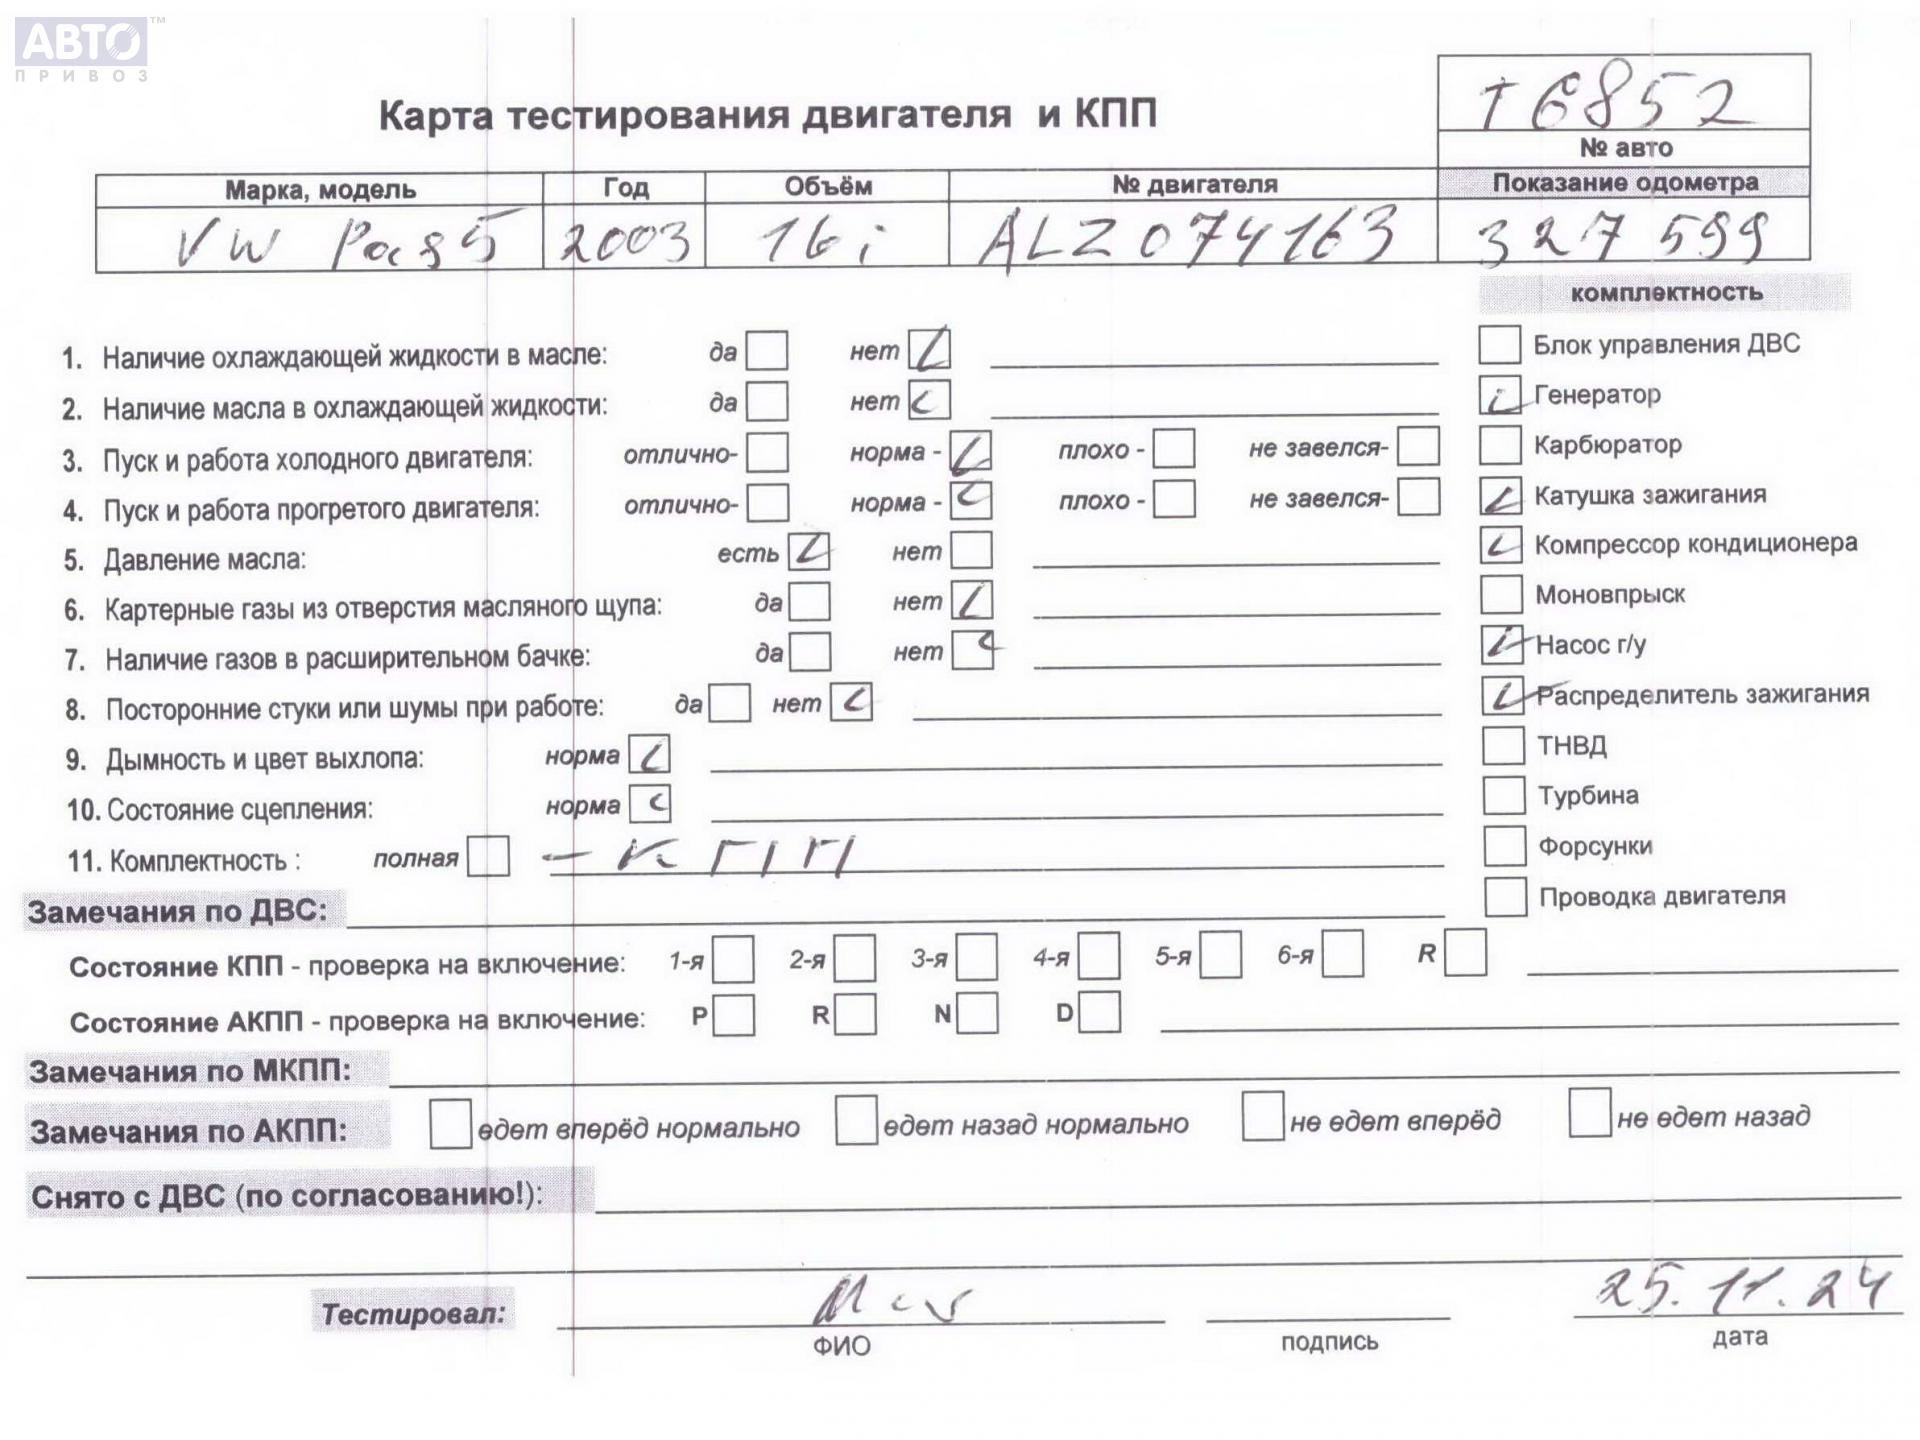 АВТО™
ПРИВОЗ
Т6852
Карта тестирования двигателя и КПП
№ авто
Марка, модель Год Объём № двигателя Показание одометра
VW Pas5 2003 16i ALZ074163 327599
комплектность
1. Наличие охлаждающей жидкости в масле: да нет
Блок управления ДВС
2. Наличие масла в охлаждающей жидкости: да нет
Генератор
3. Пуск и работа холодного двигателя: отлично- норма - плохо - не завелся-
Карбюратор
4. Пуск и работа прогретого двигателя: отлично- норма - плохо - не завелся-
Катушка зажигания
5. Давление масла: есть нет
Компрессор кондиционера
6. Картерные газы из отверстия масляного щупа: да нет
Моновпрыск
7. Наличие газов в расширительном бачке: да нет
Насос г/у
8. Посторонние стуки или шумы при работе: да нет
Распределитель зажигания
9. Дымность и цвет выхлопа: норма
ТНВД
10. Состояние сцепления: норма
Турбина
11. Комплектность : полная - КПП
Форсунки
Замечания по ДВС:
Проводка двигателя
Состояние КПП - проверка на включение: 1-я 2-я 3-я 4-я 5-я 6-я R
Состояние АКПП - проверка на включение: P R N D
Замечания по МКПП:
Замечания по АКПП: едет вперёд нормально едет назад нормально не едет вперёд не едет назад
Снято с ДВС (по согласованию!):
Тестировал: 25.11.24
ФИО подпись дата